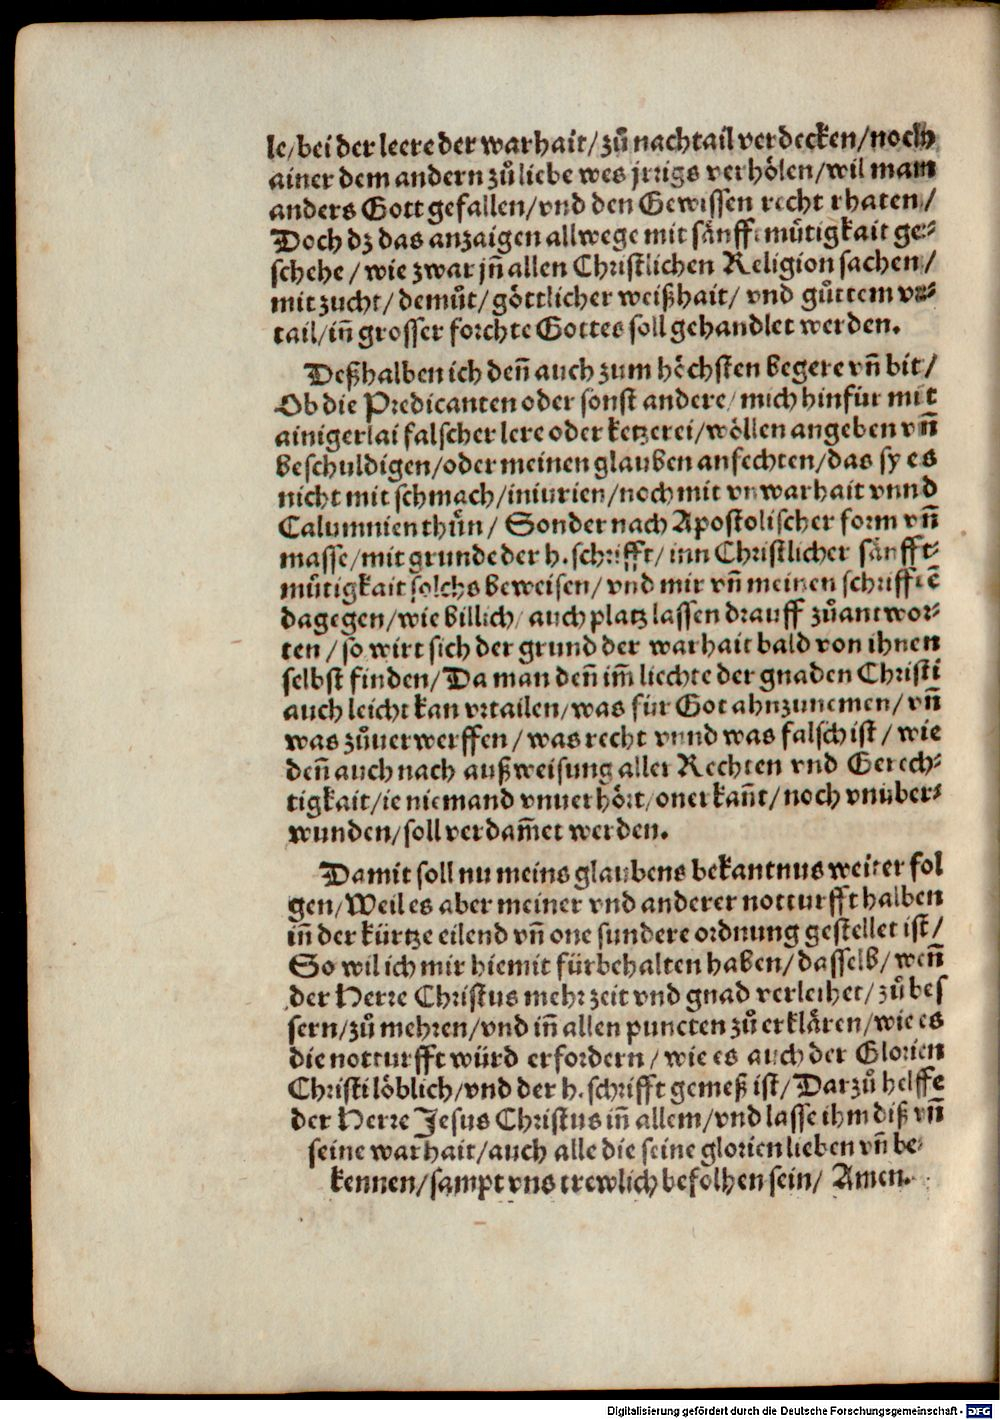 le/bei der leere der warhait/zů nachtail verdecken/noch
ainer dem andern zů liebe wes jrrigs verhölen/wil man
anders Gott gefallen/vnd den Gewissen recht rhaten/
Doch dz das anzaigen allwege mit sänfftmůtigkait ge-
schehe/wie zwar jñ allen Christlichen Religion sachen/
mit zucht/demůt/göttlicher weißhait/vnd gůttem vr-
tail/iñ grosser forchte Gottes soll gehandlet werden.
Deßhalben ich deñ auch zum höchsten begere vñ bit/
Ob die Predicanten oder sonst andere/mich hinfür mit
ainigerlai falscher lere oder ketzerei/wöllen angeben vnñ
beschuldigen/oder meinen glauben anfechten/das sy es
nicht mit schmach/iniurien/noch mit vnwarhait vnnd
Calumnien thůn/Sonder nach Apostolischer form vñ
masse/mit grunde der h. schrifft/inn Christlicher sänfft-
můtigkait solchs beweisen/vnd mir vñ meinen schrifftē
dagegen/wie billich/auch platz lassen drauff zůantwor-
ten/so wirt sich der grund der warhait bald von ihnen
selbst finden/Da man deñ im̃ liechte der gnaden Christi
auch leicht kan vrtailen/was für Got ahnzunemen/vñ
was zůuerwerffen/was recht vnnd was falsch ist/wie
deñ auch nach außweisung aller Rechten vnd Gerech-
tigkait/ie niemand vnuerhört/onerkañt/noch vnüber-
wunden/soll verdam̃et werden.
Damit soll nu meins glaubens bekantnus weiter fol
gen/Weil es aber meiner vnd anderer notturfft halben
iñ der kürtze eilend vñ one sundere ordnung gestellet ist/
So wil ich mir hiemit fürbehalten haben/dasselb/weñ
der Herre Christus mehr zeit vnd gnad verleihet/zů bes
sern/zů mehren/vnd iñ allen puncten zů erklären/wie es
die notturfft würd erfordern/wie es auch der Glorien
Christi löblich/vnd der h. schrifft gemeß ist/Darzů helffe
der Herre Jesus Christus iñ allem/vnd lasse ihm diß vñ
seine warhait/auch alle die seine glorien lieben vñ be-
kennen/sampt vns trewlich befolhen sein/Amen.
Digitalisierung gefördert durch die Deutsche Forschungsgemeinschaft - DFG